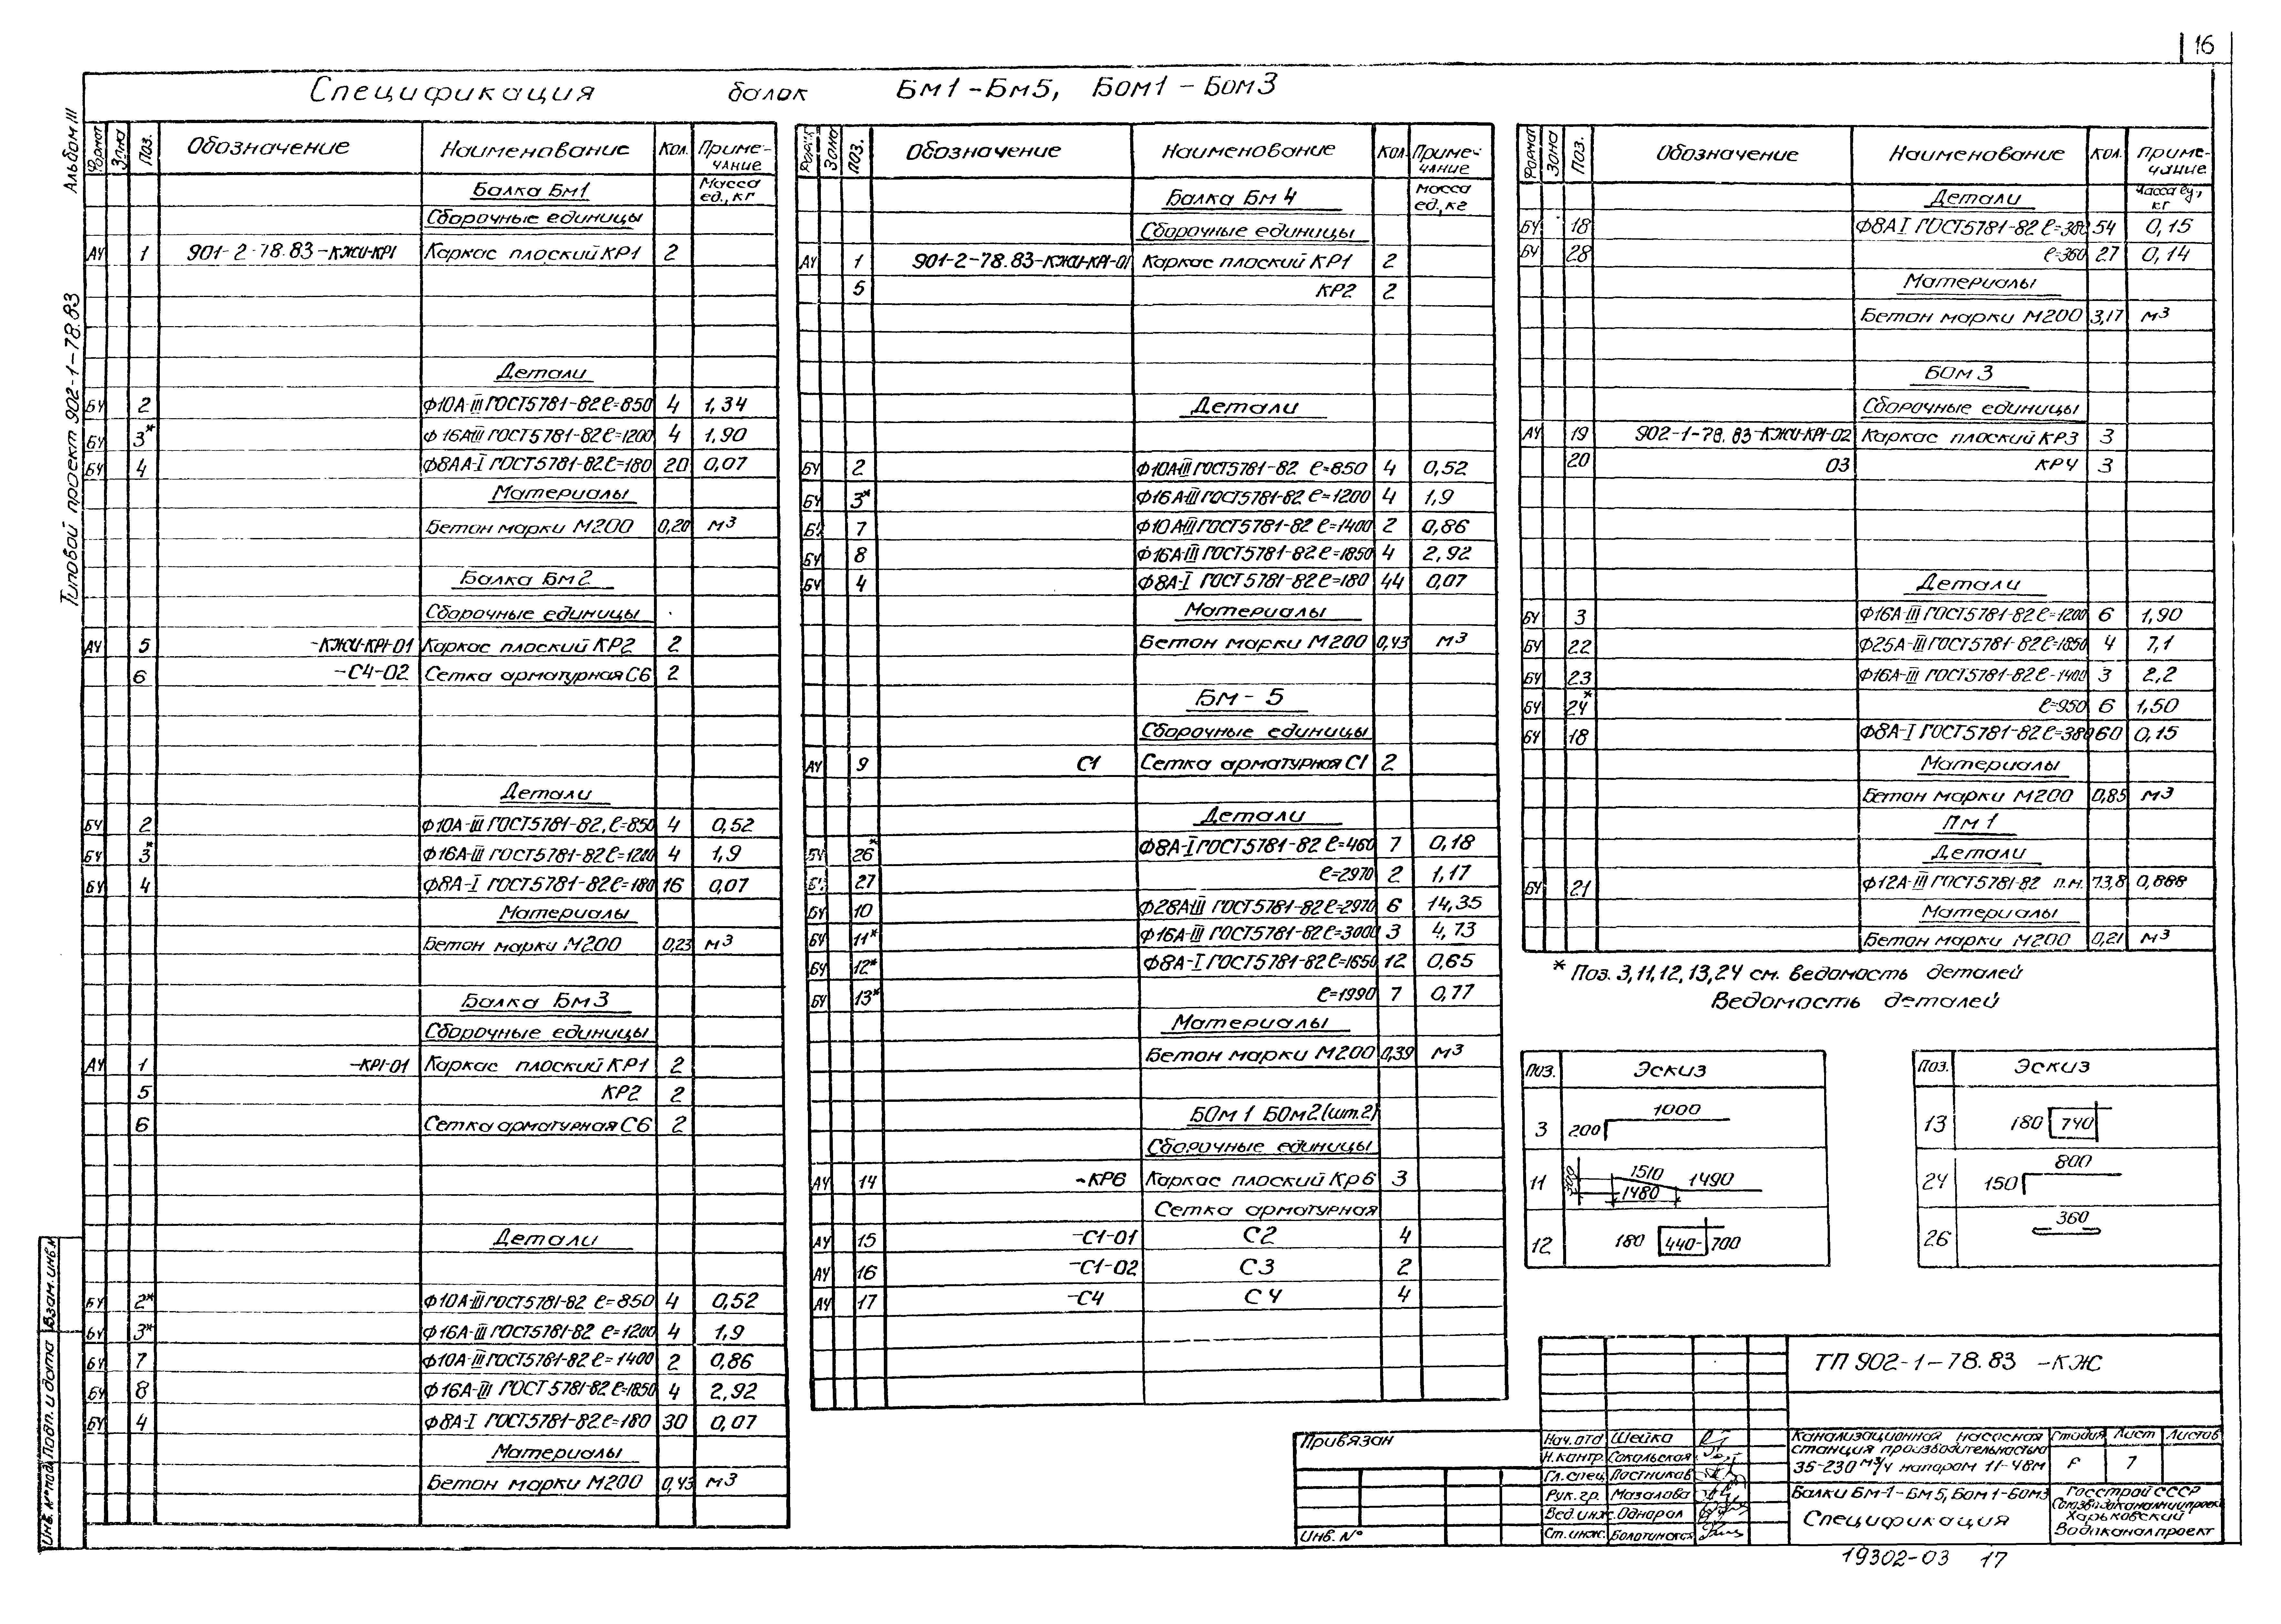 16
Альбом III
Типовой проект 902-1-78.83
Спецификация балок Бм1-Бм5, Бом1-Бом3
Формат Зона Поз. Обозначение Наименование Кол. Примечание
Масса ед., кг
Балка Бм1
Сборочные единицы
АЧ 1 901-2-78.83-КЖИ-КР1 Каркас плоский КР1 2
Детали
БЧ 2 Ф10А-III ГОСТ5781-82 ℓ=850 4 1,34
БЧ 3* Ф16АIII ГОСТ5781-82 ℓ=1200 4 1,90
БЧ 4 Ф8АА-I ГОСТ5781-82 ℓ=180 20 0,07
Материалы
Бетон марки М200 0,20 м3
Балка Бм2
Сборочные единицы
АЧ 5 -КЖИ-КР1-01 Каркас плоский КР2 2
6 -С4-02 Сетка арматурная С6 2
Детали
БЧ 2 Ф10А-III ГОСТ5781-82, ℓ=850 4 0,52
БЧ 3* Ф16А-III ГОСТ5781-82 ℓ=1200 4 1,9
БЧ 4 Ф8А-I ГОСТ5781-82 ℓ=180 16 0,07
Материалы
Бетон марки М200 0,23 м3
Балка Бм3
Сборочные единицы
АЧ 1 -КР1-01 Каркас плоский КР1 2
5 КР2 2
6 Сетка арматурная С6 2
Детали
БЧ 2* Ф10А-III ГОСТ5781-82 ℓ=850 4 0,52
БЧ 3* Ф16А-III ГОСТ5781-82 ℓ=1200 4 1,9
БЧ 7 Ф10А-III ГОСТ5781-82 ℓ=1400 2 0,86
БЧ 8 Ф16А-III ГОСТ5781-82 ℓ=1850 4 2,92
БЧ 4 Ф8А-I ГОСТ5781-82 ℓ=180 30 0,07
Материалы
Бетон марки М200 0,43 м3
Формат Зона Поз. Обозначение Наименование Кол. Примечание
Масса ед., кг
Балка Бм4
Сборочные единицы
АЧ 1 901-2-78.83-КЖИ-КР1-01 Каркас плоский КР1 2
5 КР2 2
Детали
БЧ 2 Ф10А-III ГОСТ5781-82 ℓ=850 4 0,52
БЧ 3* Ф16А-III ГОСТ5781-82 ℓ=1200 4 1,9
БЧ 7 Ф10АIII ГОСТ5781-82 ℓ=1400 2 0,86
БЧ 8 Ф16А-III ГОСТ5781-82 ℓ=1850 4 2,92
БЧ 4 Ф8А-I ГОСТ5781-82 ℓ=180 44 0,07
Материалы
Бетон марки М200 0,43 м3
БМ-5
Сборочные единицы
АЧ 9 С1 Сетка арматурная С1 2
Детали
БЧ 26* Ф8А-I ГОСТ5781-82 ℓ=460 7 0,18
БЧ 27 ℓ=2970 2 1,17
БЧ 10 Ф28АIII ГОСТ5781-82 ℓ=2970 6 14,35
БЧ 11* Ф16А-III ГОСТ5781-82 ℓ=3000 3 4,73
БЧ 12* Ф8А-I ГОСТ5781-82 ℓ=1650 12 0,65
БЧ 13* ℓ=1990 7 0,77
Материалы
Бетон марки М200 0,39 м3
БОм1 БОм2 (шт.2)
Сборочные единицы
АЧ 14 -КР6 Каркас плоский Кр6 3
Сетка арматурная
АЧ 15 -С1-01 С2 4
АЧ 16 -С1-02 С3 2
АЧ 17 -С4 С4 4
Формат Зона Поз. Обозначение Наименование Кол. Примечание
Масса ед., кг
Детали
БЧ 18 Ф8АI ГОСТ5781-82 ℓ=380 54 0,15
БЧ 28 ℓ=360 27 0,14
Материалы
Бетон марки М200 3,17 м3
БОм3
Сборочные единицы
АЧ 19 902-1-78.83-КЖИ-КР1-02 Каркас плоский КР3 3
20 03 КР4 3
Детали
БЧ 3 Ф16А-III ГОСТ5781-82 ℓ=1200 6 1,90
БЧ 22 Ф25А-III ГОСТ5781-82 ℓ=1850 4 7,1
БЧ 23 Ф16А-III ГОСТ5781-82 ℓ-1400 3 2,2
БЧ 24* ℓ=950 6 1,50
БЧ 18 Ф8А-I ГОСТ5781-82 ℓ=380 60 0,15
Материалы
Бетон марки М200 0,85 м3
Пм1
Детали
БЧ 21 Ф12А-III ГОСТ5781-82 п.м. 73,8 0,888
Материалы
Бетон марки М200 0,21 м3
* Поз. 3,11,12,13,24 см. ведомость деталей
Ведомость деталей
Поз. Эскиз
3 200 1000
11 1510 1480 1490
12 180 440 700
Поз. Эскиз
13 180 740
24 150 800
26 360
ТП 902-1-78.83 -КЖ
Привязан
Инв. №
Нач. отд Шейко
Н.контр. Сокольская
Гл.спец. Постников
Рук.гр. Мазалова
Вед.инж. Однорал
Ст.инж.
Канализационная насосная станция производительностью 35-230 м3/ч напором 11-48м
Стадия Лист Листов
Р 7
Балки БМ-1-БМ5, Бом1-Бом3
Спецификация
Госстрой СССР
Союзводоканалниипроект
Харьковский
Водоканалпроект
Инв. № подл. Подп. и дата Взам. инв.№
19302-03 17